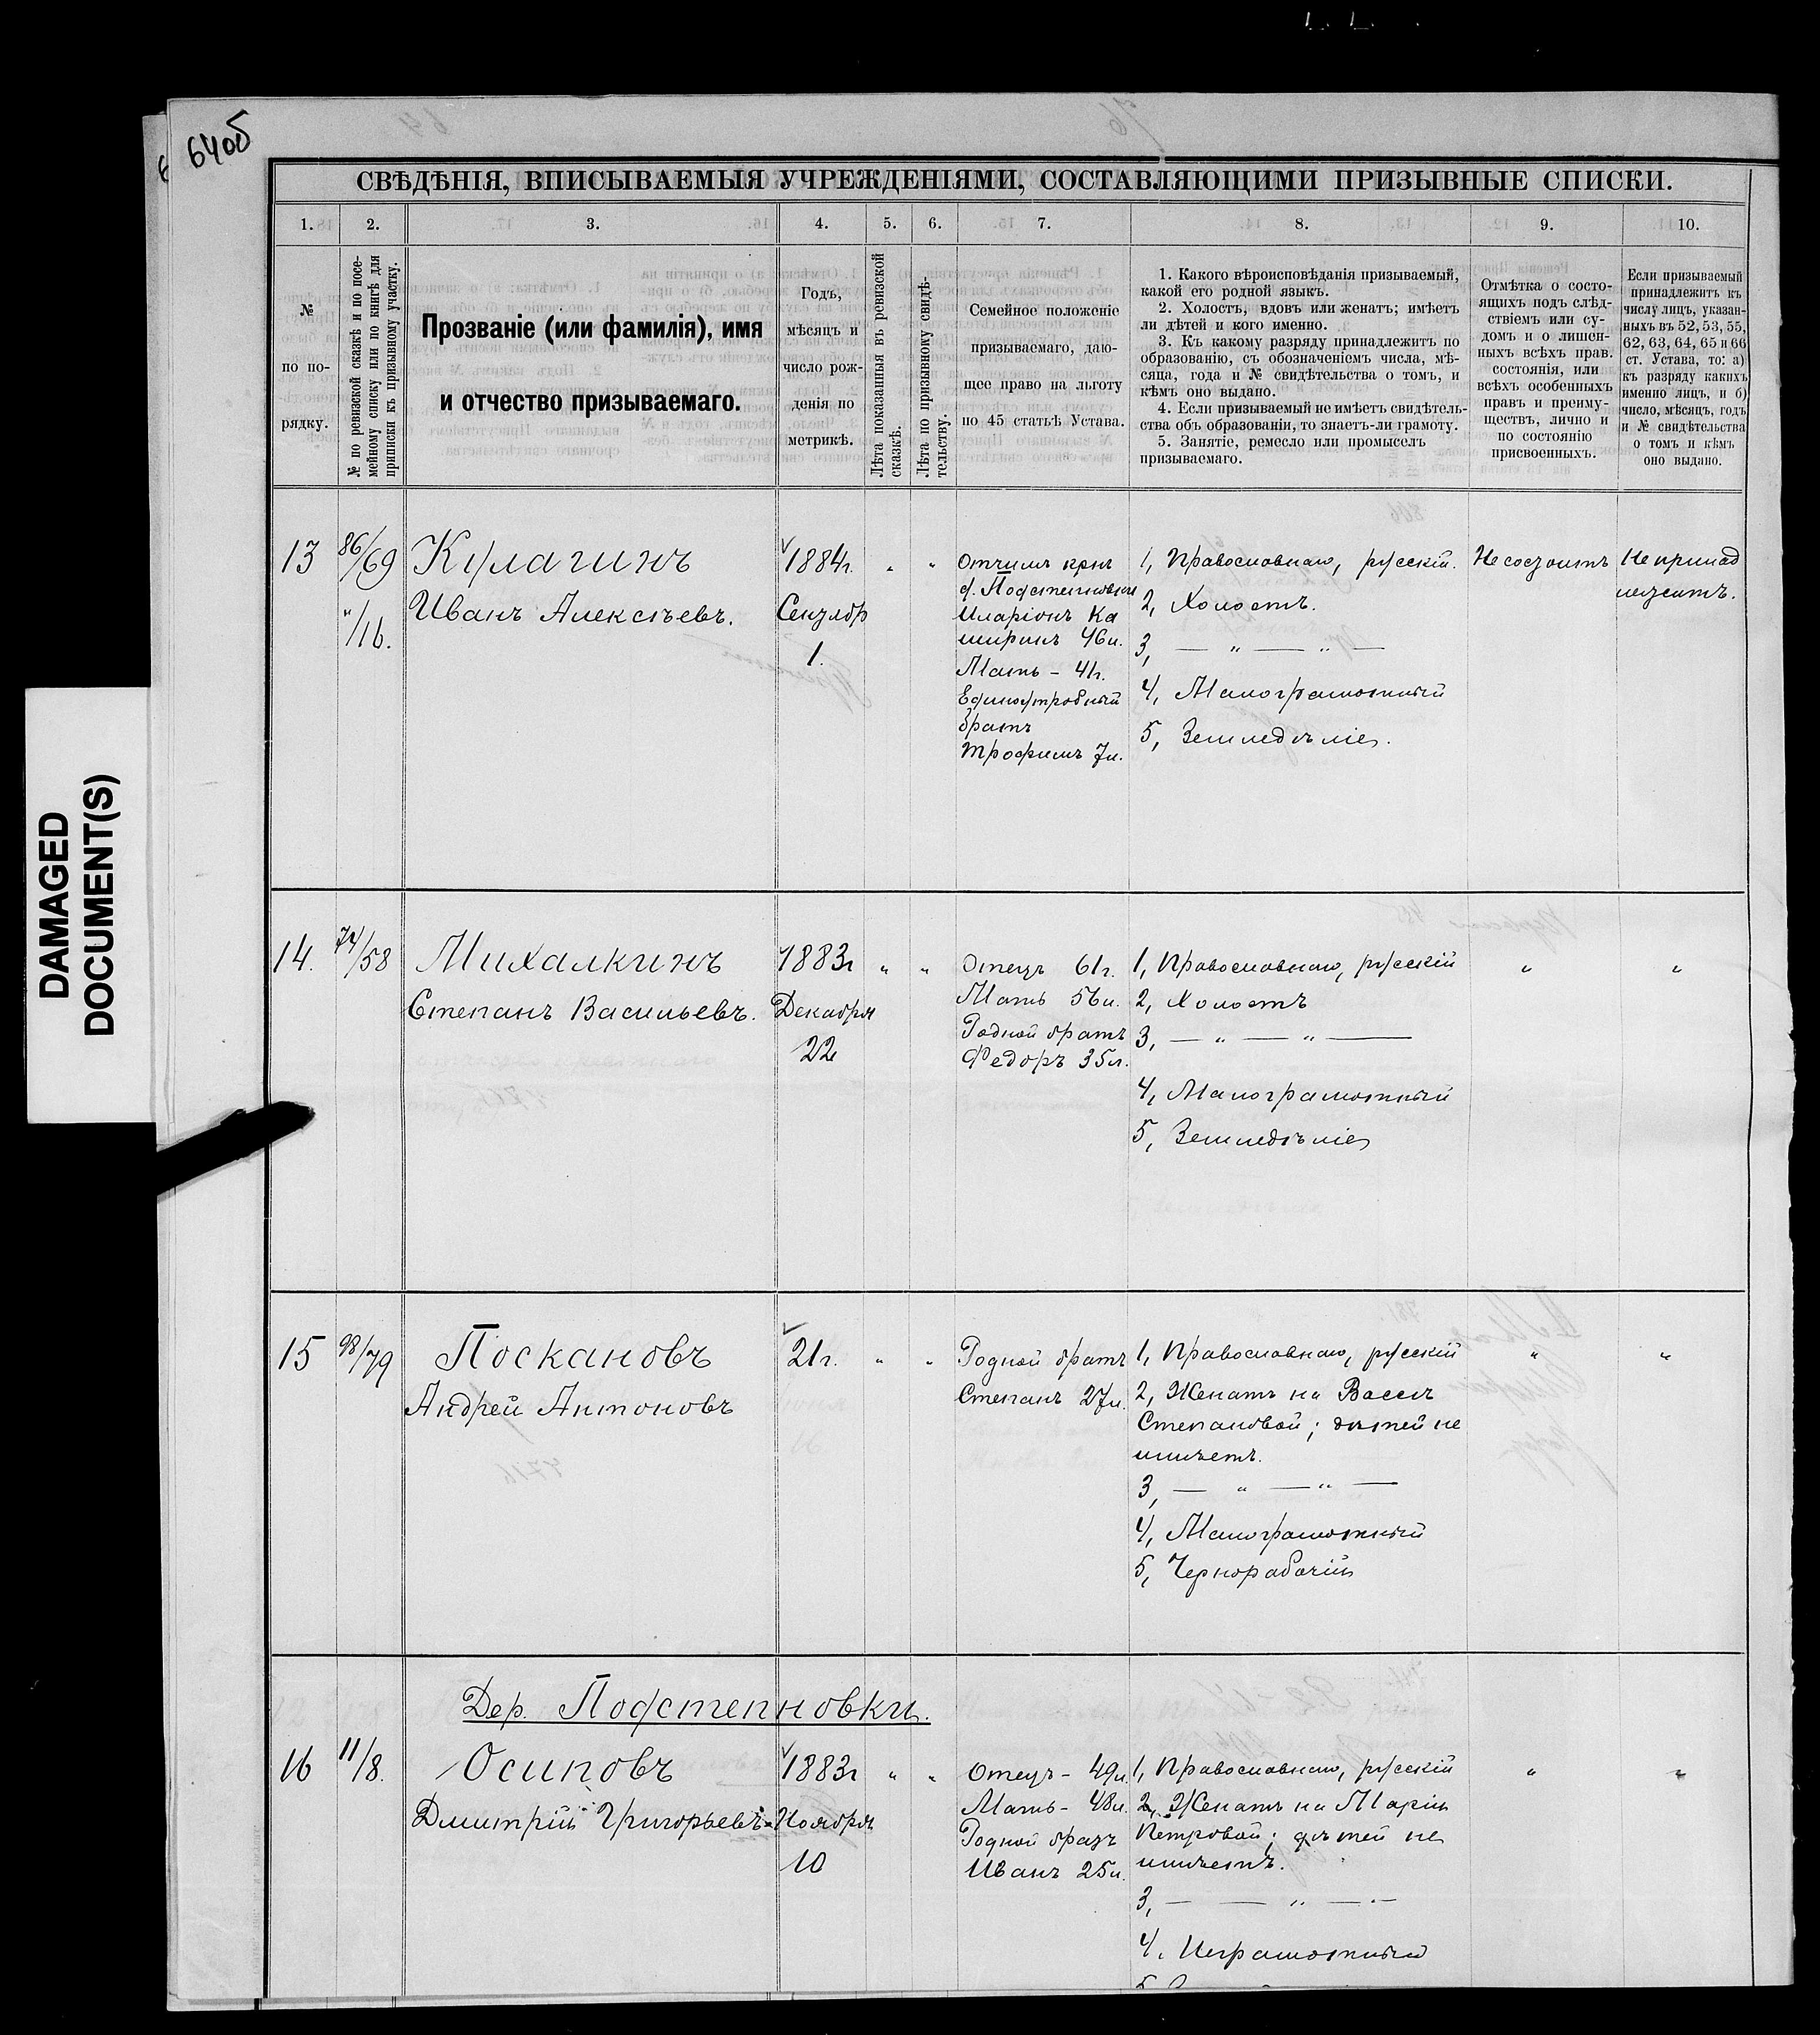 64об
СВѢДѢНІЯ, ВПИСЫВАЕМЫЯ УЧРЕЖДЕНІЯМИ, СОСТАВЛЯЮЩИМИ ПРИЗЫВНЫЕ СПИСКИ.
1. 2. 3. 4. 5. 6. 7. 8. 9. 10.
№
по по-
рядку.
№ по ревизской сказкѣ и по посе-
мейному списку или по книгѣ для
приписки къ призывному участку.
Прозваніе (или фамилія), имя
и отчество призываемаго.
Годъ,
мѣсяцъ и
число рож-
денія по
метрикѣ.
Лѣта показанныя въ ревизской
сказкѣ.
Лѣта по призывному свидѣ-
тельству.
Семейное положеніе
призываемаго, даю-
щее право на льготу
по 45 статьѣ Устава.
1. Какого вѣроисповѣданія призываемый,
какой его родной языкъ.
2. Холостъ, вдовъ или женатъ; имѣетъ
ли дѣтей и кого именно.
3. Къ какому разряду принадлежитъ по
образованію, съ обозначеніемъ числа, мѣ-
сяца, года и № свидѣтельства о томъ, и
кѣмъ оно выдано.
4. Если призываемый не имѣетъ свидѣтель-
ства объ образованіи, то знаетъ-ли грамоту.
5. Занятіе, ремесло или промыселъ
призываемаго.
Отмѣтка о состо-
ящихъ подъ слѣд-
ствіемъ или су-
домъ и о лишен-
ныхъ всѣхъ прав.
состоянія, или
всѣхъ особенныхъ
правъ и преиму-
ществъ, лично и
по состоянію
присвоенныхъ.
Если призываемый
принадлежитъ къ
числу лицъ, указан-
ныхъ въ 52, 53, 55,
62, 63, 64, 65 и 66
ст. Устава, то: а)
къ разряду какихъ
именно лицъ, и б)
число, мѣсяцъ, годъ
и № свидѣтельства
о томъ и кѣмъ
оно выдано.
13
86/69
"/16.
Кулагинъ
Иванъ Алексѣевъ.
1884г.
Сентябр
1.
" "
Отчимъ крнъ
д. Подстепновки
Иларіонъ Ка
ширинъ 46л.
Мать - 41г.
Единоутробный
братъ
Трофимъ 7л.
1, Православнаго, русскій.
2, Холостъ.
3, — " — " —
4, Малограмотный
5, Земледѣліе.
Не состоитъ
Не принад
лежитъ.
14.
74/58
Михалкинъ
Степанъ Васильевъ.
1883г
Декабря
22
" "
Отецъ 61г.
Мать 56л.
Родной братъ
Федоръ 35л.
1, Православнаго, русскій
2, Холостъ
3, — " — " —
4, Малограмотный
5, Земледѣліе
" "
15
98/79
Поскановъ
Андрей Антоновъ
21г.
" "
Родной братъ
Степанъ 27л.
1, Православнаго, русскій
2, Женатъ на Вассѣ
Степановой; дѣтей не
имѣетъ.
3, — " — " —
4, Малограмотный
5, Чернорабочій
" "
Дер. Подстепновки.
16
11/8.
Осиповъ
Дмитрій Григорьевъ
1883г
Ноября
10
" "
Отецъ - 49л.
Мать - 48л.
Родной братъ
Иванъ 25л.
1, Православнаго, русскій
2, Женатъ на Маріи
Петровой; дѣтей не
имѣетъ.
3, — — " — —
4, Неграмотный
5,
" "
DAMAGED
DOCUMENT(S)